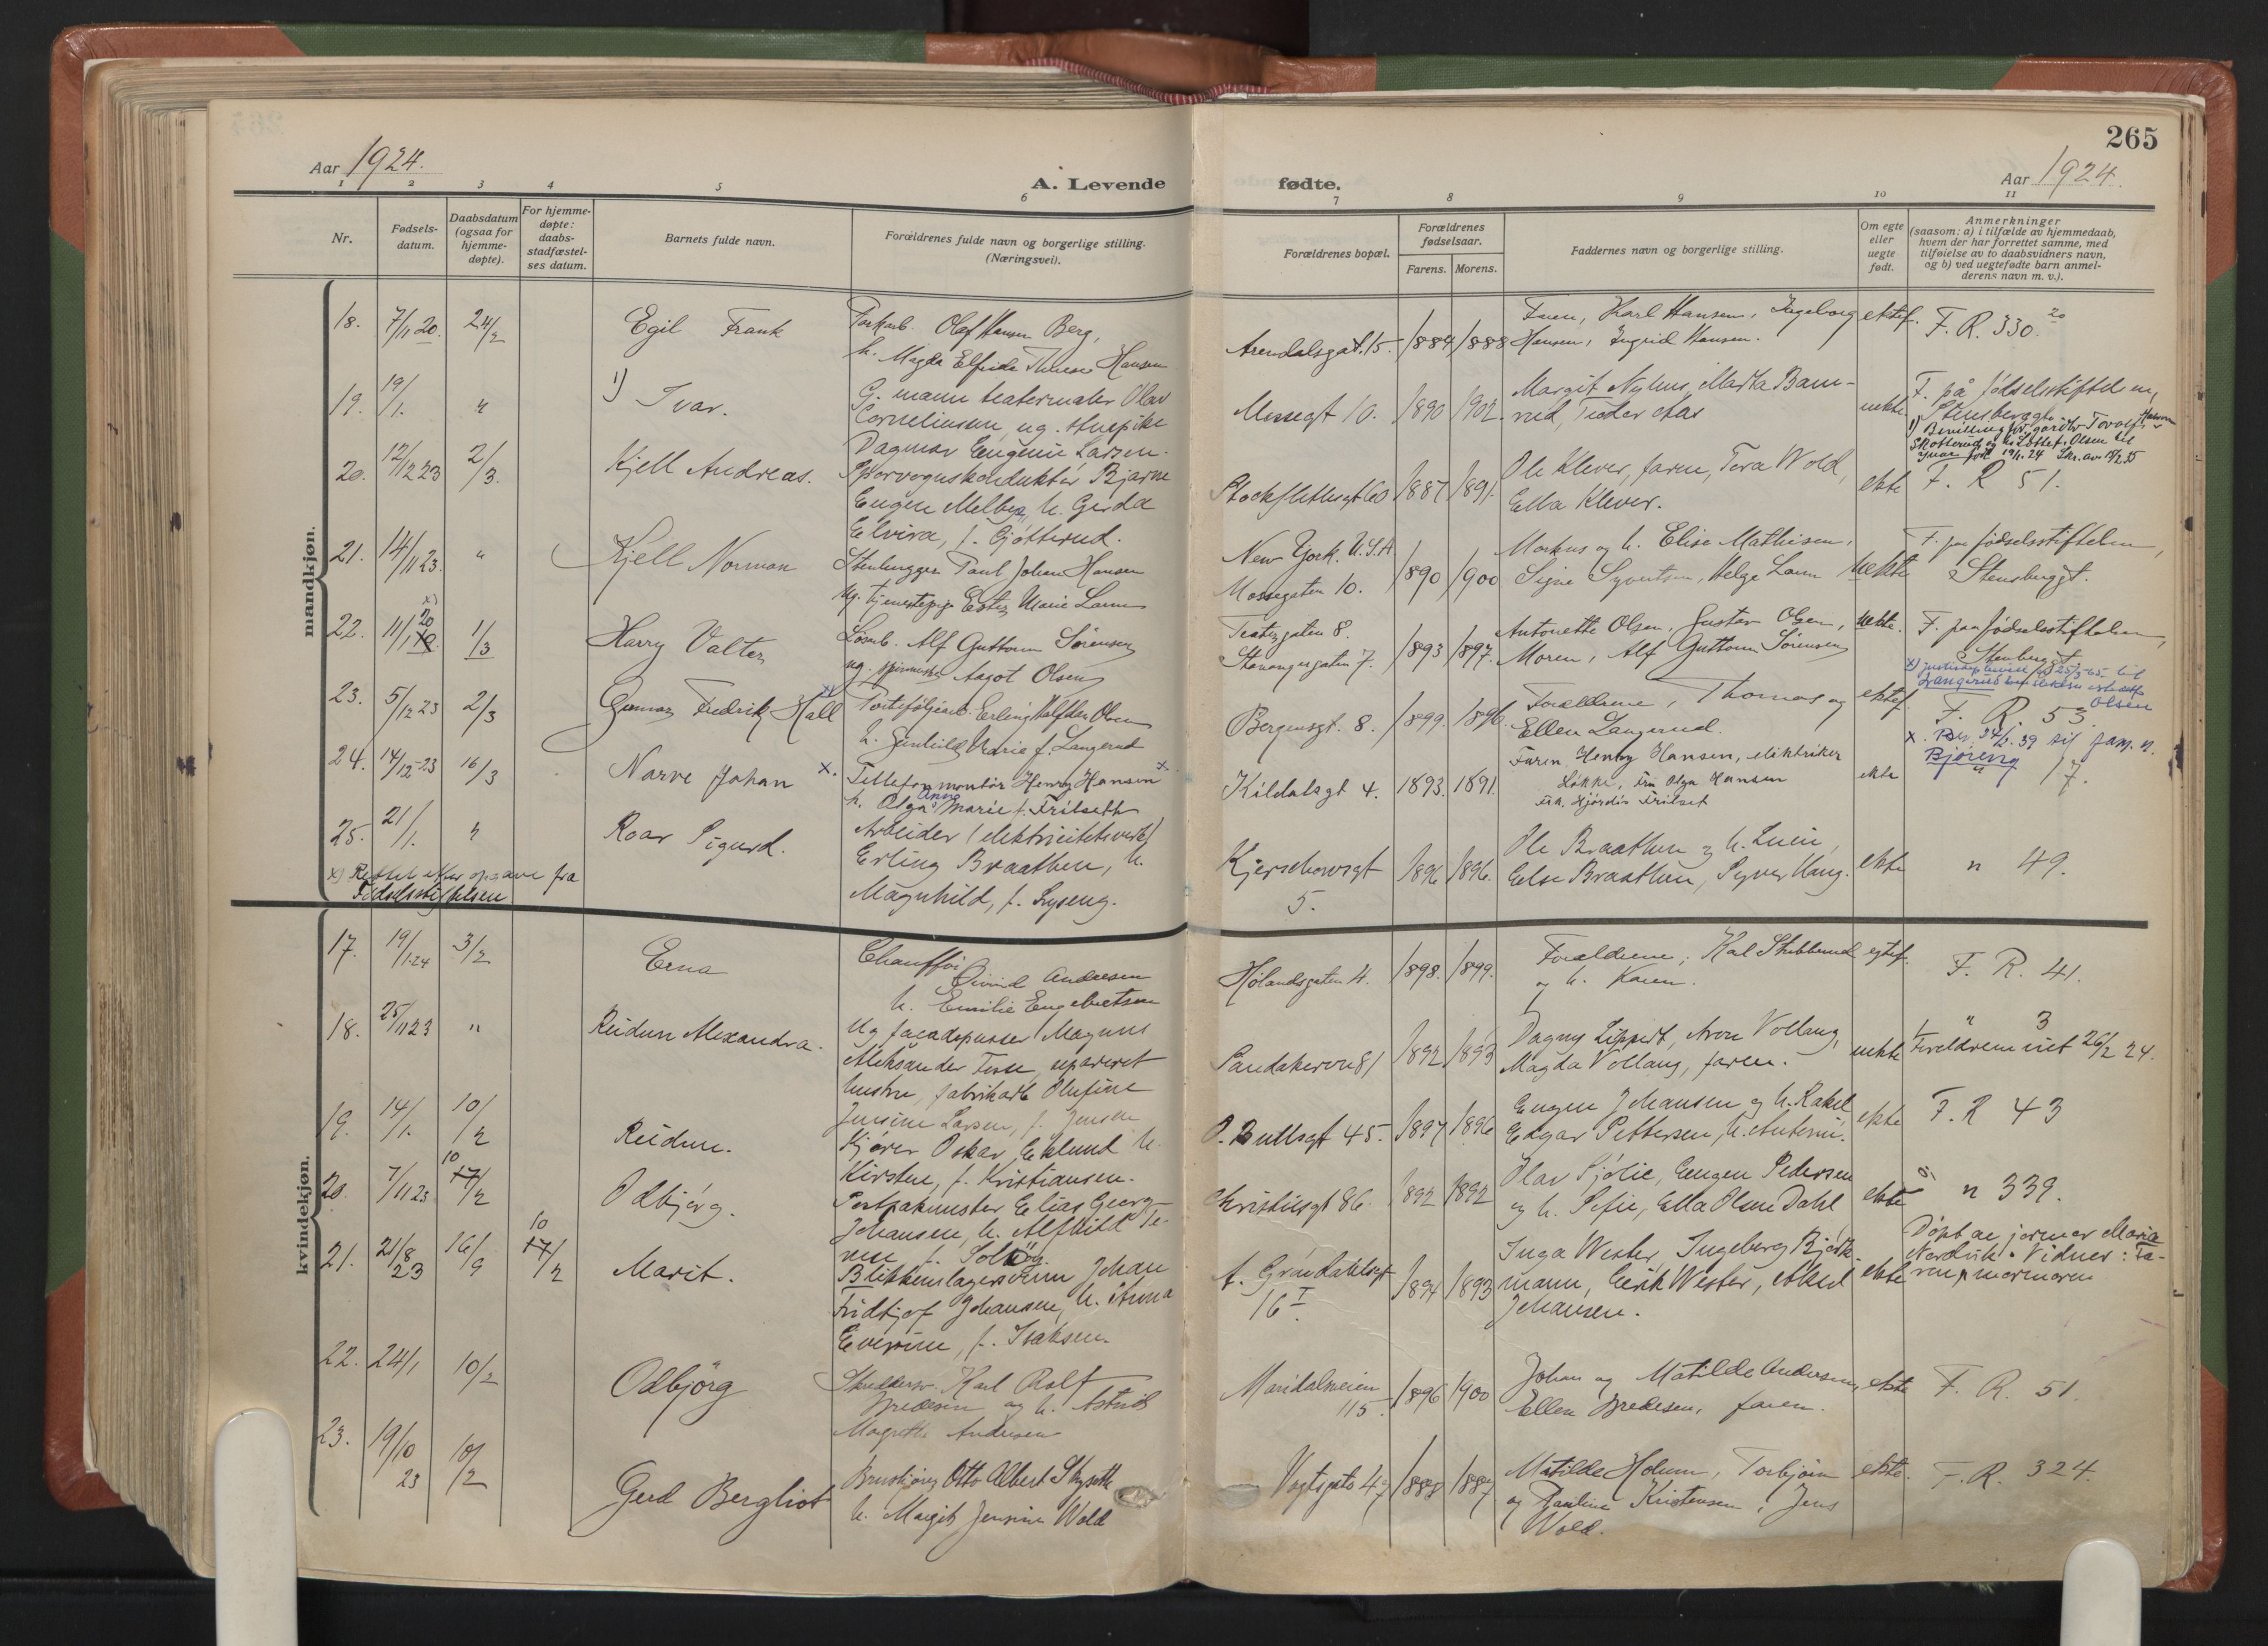 265
Aar 1924.
A. Levende
fødte.
Aar 1924.
1 2 3 4 5 6 7 8 9 10 11
Nr.
Fødsels-
datum.
Daabsdatum
(ogsaa for
hjemme-
døpte).
For hjemme-
døpte:
daabs-
stadfæstel-
ses datum.
Barnets fulde navn.
Forældrenes fulde navn og borgerlige stilling.
(Næringsvei).
Forældrenes bopæl.
Forældrenes
fødselsaar.
Farens. Morens.
Faddernes navn og borgerlige stilling.
Om egte
eller
uegte
født.
Anmerkninger
(saasom: a) i tilfælde av hjemmedaab,
hvem der har forrettet samme, med
tilføielse av to daabsvidners navn,
og b) ved uegtefødte barn anmel-
derens navn m. v.).
mandkjøn.
18. 7/11 20. 24/2 Egil Frank
Olaf Hansen Berg,
h. Magda Elfrida Therese Hansen
Arendalsgat. 15. 1884 1888
Faren, Karl Hansen, Ingeborg
Hansen, Ingrid Hansen.
ektef. F. R. 330. 20
19. 19/1. " 1) Ivar.
G. mann teatermaler Olav
Corneliussen, ug. stuepike
Dagmar Eugenie Larsen.
Mossegt 10. 1890 1902.
Margit Nyhus, Marta Bam-
rud, Teodor
uekte.
F. på fødselsstiftelsen,
Stensberggt.
20. 12/12 23 2/3. Kjell Andreas.
Sporvognskonduktør Bjarne
Eugen Melbye, h. Gerda
Elvira, f. Gjøtterud.
Stockflethsgt 60 1887 1891.
Ole Klever, faren, Tora Wold,
Ella Klever.
ekte F. R 51.
21. 14/11 23. " Kjell Norman
Stenhugger Paul Johan Hansen
ug. tjenestepige Ester Marie Larm
New York. U.S.A
Mossegaten 10. 1890 1900
Markus og h. Elise Mathisen,
Signe Syvertsen, Helge Larm
uekte
F. paa fødselsstiftelsen,
Stensberggt.
22. 11/1 x) 20 1/3 Harry Valter
Løsarb. Alf Guttorm Sørensen
ug. Aagot Olsen
Teatergaten 8.
Stavangergaten 7. 1893 1897.
Antonette Olsen, Gustav Olsen,
Moren, Alf Guttorm Sørensen
uekte.
F. paa fødselsstiftelsen,
Stensberggt.
23. 5/12 23 2/3 Gunnar Fredrik Hall
Erling Halfdan Olsen
h. Gunhild Marie f. Langerud
Bergensgt. 8. 1899. 1896.
Forældrene, Thomas og
Ellen Langerud.
ektef.
Langerud
Olsen
F. R. 53.
24. 14/12-23 16/3 Narve Johan x.
Tellefonmontør Henry Hansen x
h. Olga Anna Marie f. Frilseth
Kildalsgt 4. 1893. 1891.
Faren, Henry Hansen, elektriker
Løkke, Fru Olga Hansen
Frk. Hjørdis Frilset
ekte
Bjøreng
" 17.
25. 21/1. " Roar Sigurd.
Arbeider (elektricitetsverk)
Erling Braathen, h.
Magnhild, f. Lyseng.
Kjerschowsgt
5. 1896 1896.
Ole Braathen og h. Luise,
Else Braathen, Syver Haug.
ekte " 49.
x) Rettet efter opgave fra
Fødselsstiftelsen
kvindekjøn.
17. 19/1.24 3/2 Erna
Chauffør
Øivind Andresen
h. Emilie Engebretsen
Hølandsgaten 4. 1898. 1899.
Forældrene, Karl Stubberud
og h. Karen.
egtef. F. R. 41.
18. 25/11 23 " Reidun Alexandra.
Ug facadepusser Magnus
Aleksander Foss, separeret
hustru, fabrikarb. Olufine
Jensine Larsen, f. Jensen
Sandakervn 81 1892 1893
Dagny Lippert, Aron Vollaug,
Magda Vollaug, faren.
uekte
" 3
Foreldrene viet 26/2 24.
19. 14/1. 10/2 Reidun.
Kjører Oskar Eklund h.
Kirsten, f. Kristiansen.
O. Bullsgt 45. 1897 1896
Eugen Johansen og h. Rakel,
Edgar Pettersen, h. Antonie.
ekte F. R 43
20. 7/11 23. 10 17/2 Odbjørg.
Postpakmester Elias Georg
Johansen, h. Alfhild Te-
rese f. Solhøg
Christiesgt 86. 1892 1892
Olav Sjølie, Eugen Pedersen
og h. Sofie, Ella Olsen Dahl
ekte " 339.
21. 21/8 23 16/9 10 17/2 Marit.
Blikkenslagersvenn Johan
Fridtjof Johansen, h. Anna
Everine, f. Isaksen.
A. Grøndahlsgt
16 I. 1894 1893
Inga Wester, Ingeborg Bjørk-
mann, Eirik Wester, Aksel
Johansen.
ekte
Døpt av jormor Maria
Nordvik. Vidner: Fa-
ren, mormoren
22. 24/1 10/2 Odbjörg
Karl Rolf
Bredesen og h. Astrid
Magrethe Andersen
Maridalsveien
115. 1896 1900
Johan og Matilde Andersen,
Ellen Bredesen, faren.
ekte F. R. 51.
23. 19/10 23 10/2 Gerd Bergliot
Otto Albert
h. Margit Jensine Wold
Vogtsgate 47 1888 1887
Matilde Holum, Torbjørn
og Pauline Kristensen, Jens
Wold.
ekte. F. R. 324.